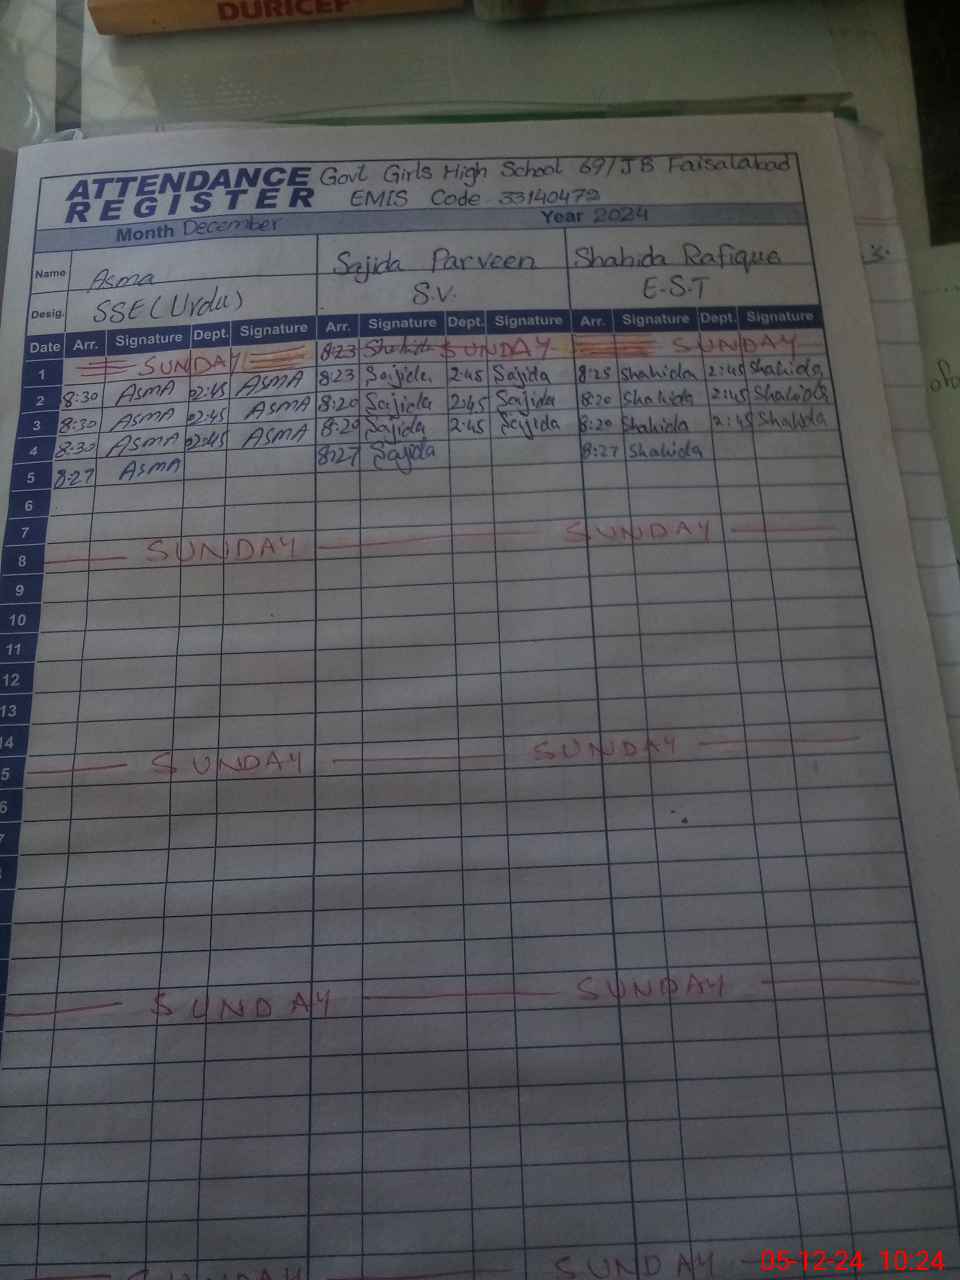 DURICEF
ATTENDANCE REGISTER
Govt Girls High School 69/JB Faisalabad
EMIS Code 33140472
Month December Year 2024
Name Asma Sajida Parveen Shahida Rafique
Desig. SSE (Urdu) S.V. E-S-T
Date Arr. Signature Dept. Signature Arr. Signature Dept. Signature Arr. Signature Dept. Signature
1 SUNDAY 8:23 SUNDAY SUNDAY
2 8:30 ASMA 02:45 ASMA 8:23 Sajida 2:45 Sajida 8:25 Shahida 2:45 Shahida
3 8:30 ASMA 02:45 ASMA 8:20 Sajida 2:45 Sajida 8:20 Shahida 2:45 Shahida
4 8:30 ASMA 02:45 ASMA 8:20 Sajida 2:45 Sajida 8:20 Shahida 2:45 Shahida
5 8:27 ASMA 8:27 Sajida 8:27 Shahida
6
7
8 SUNDAY SUNDAY
9
10
11
12
13
14
5 SUNDAY SUNDAY
6
7
SUNDAY SUNDAY
SUNDAY SUNDAY
05-12-24 10:24